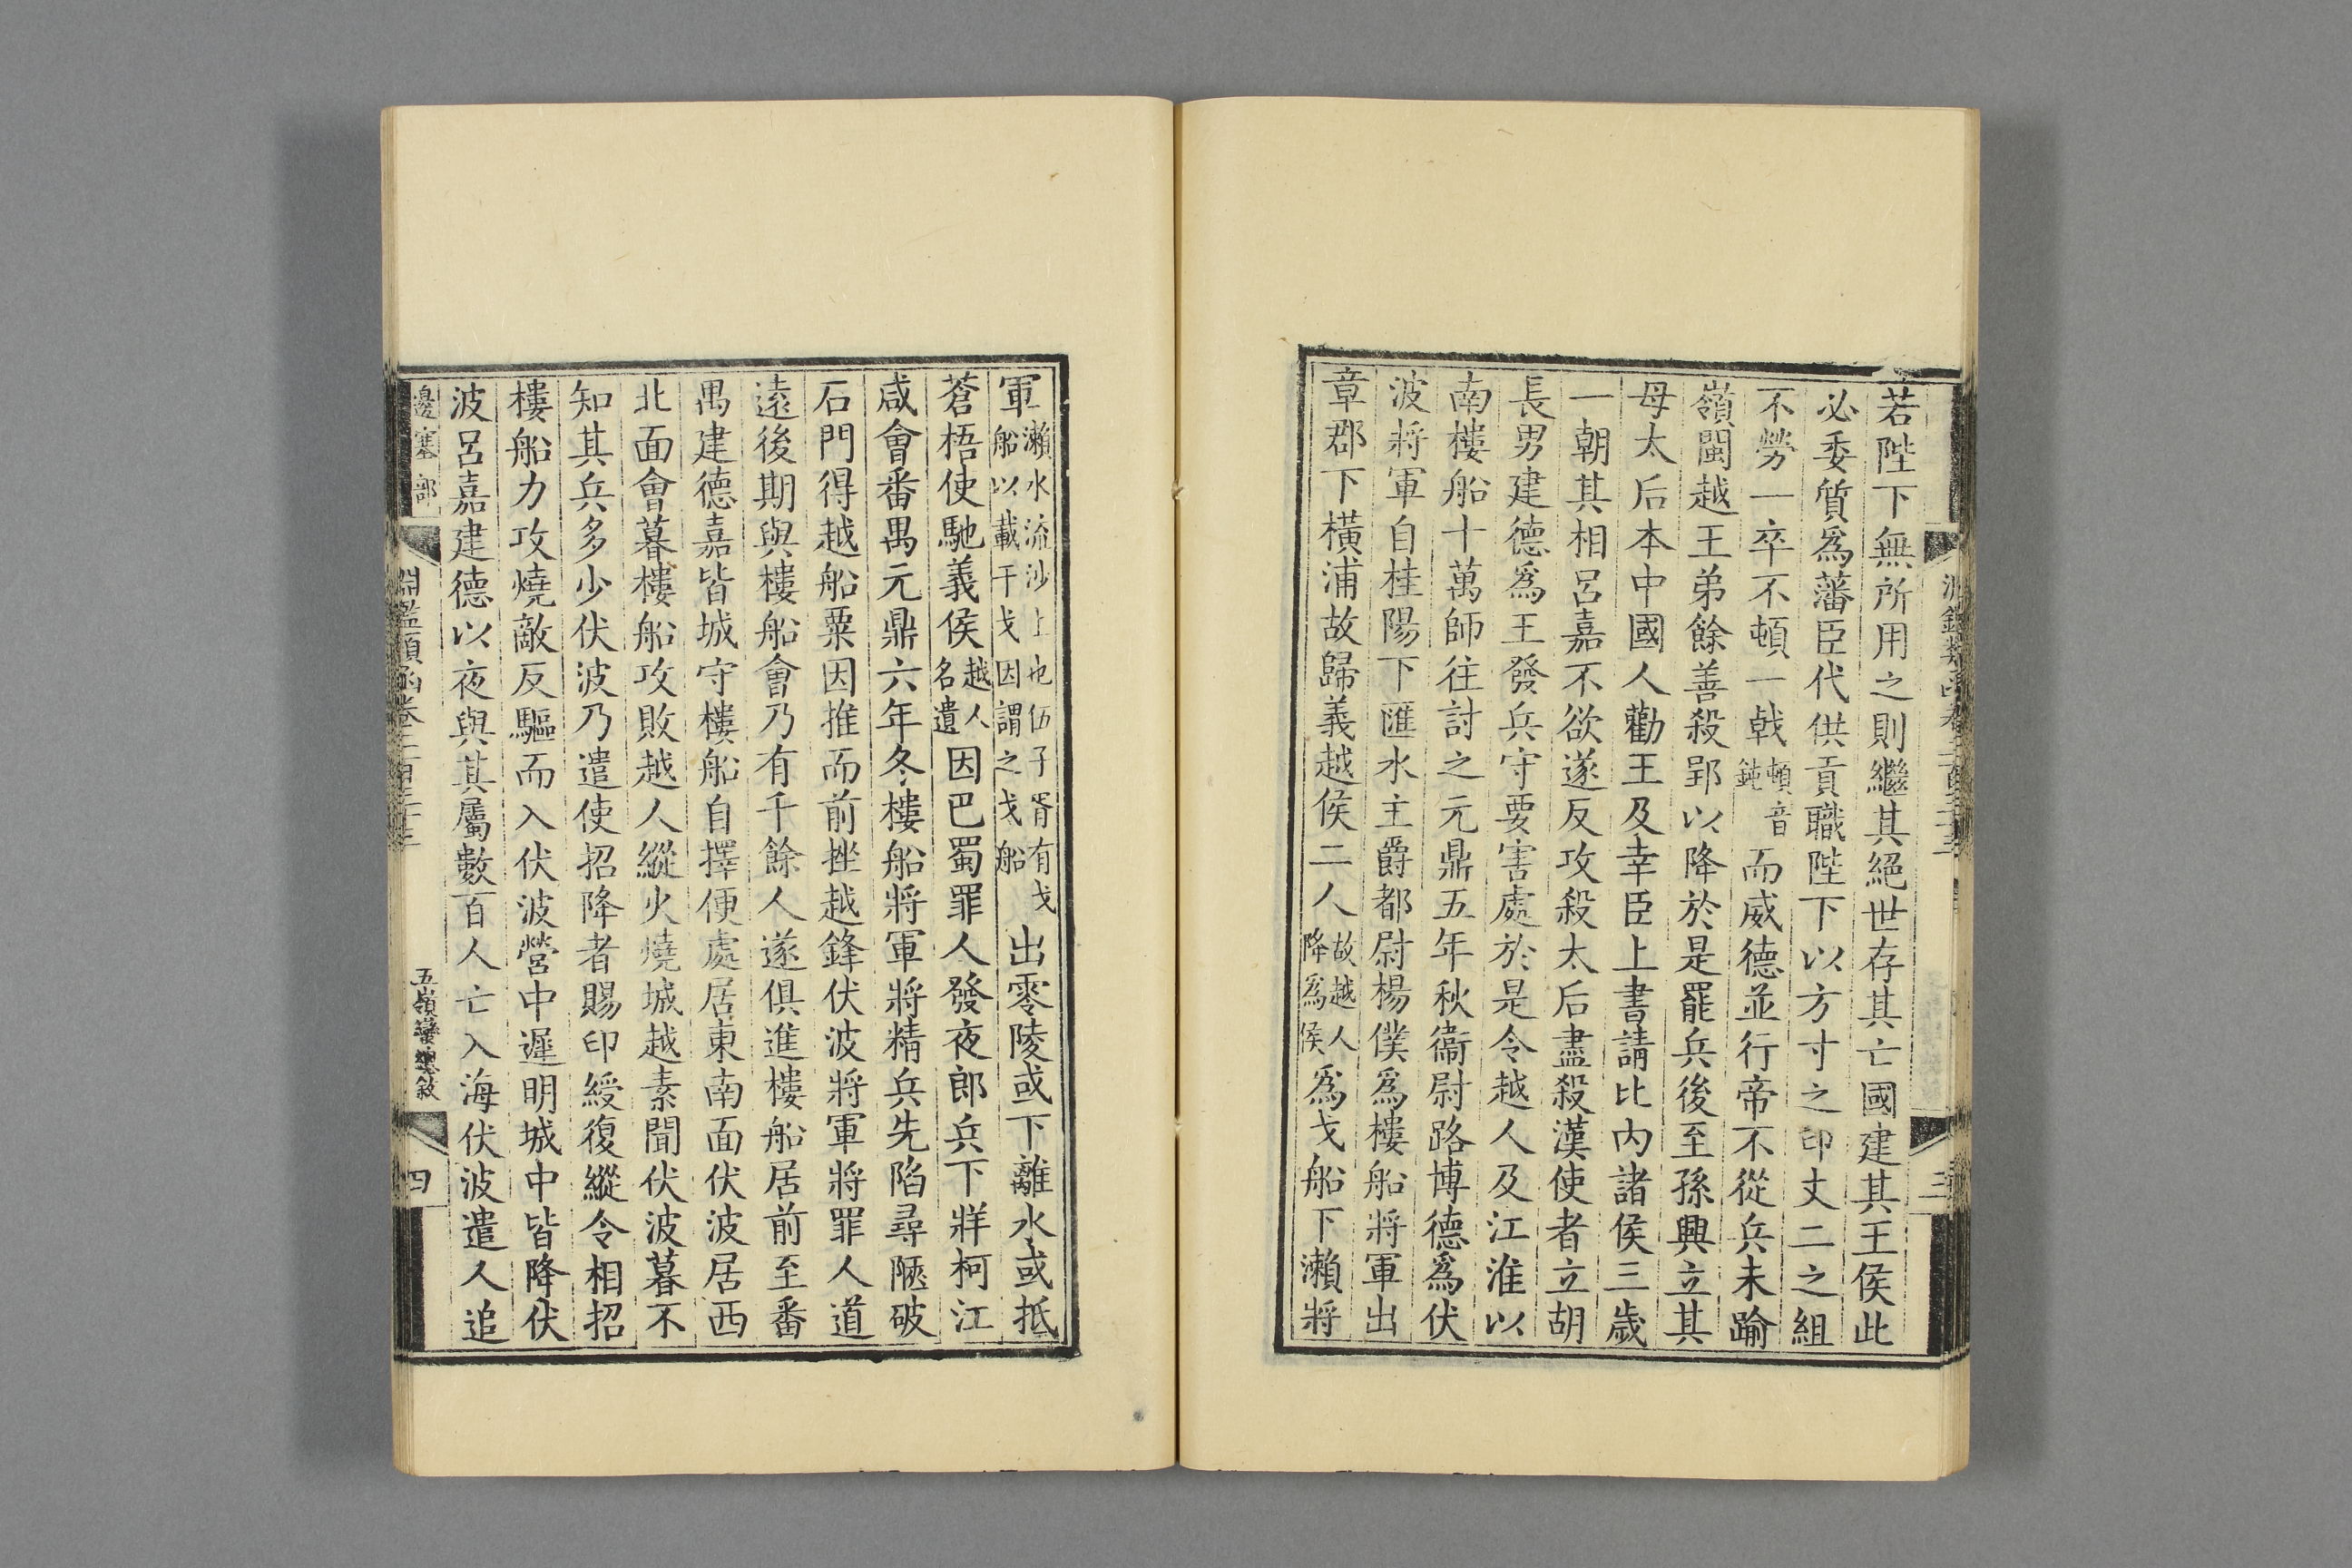 若陛下無所用之則繼其絕世存其亡國建其王侯此
必委質爲藩臣代供貢職陛下以方寸之印丈二之組
不勞一卒不頓一戟頓音鈍而威德並行帝不從兵未踰
嶺閩越王弟餘善殺郢以降於是罷兵後至孫興立其
母太后本中國人勸王及幸臣上書請比内諸侯三歲
一朝其相呂嘉不欲遂反攻殺太后盡殺漢使者立胡
長男建德爲王發兵守要害處於是令越人及江淮以
南樓船十萬師往討之元鼎五年秋衞尉路博德爲伏
波將軍自桂陽下匯水主爵都尉楊僕爲樓船將軍出
章郡下橫浦故歸義越侯二人故越人降爲侯爲戈船下瀨將
軍瀨水流沙上也伍子胥有戈船以載干戈因謂之戈船出零陵或下離水或抵
蒼梧使馳義侯越人名遺因巴蜀罪人發夜郎兵下牂柯江
咸會番禺元鼎六年冬樓船將軍將精兵先陷尋陿破
石門得越船粟因推而前挫越鋒伏波將軍將罪人道
遠後期與樓船會乃有千餘人遂俱進樓船居前至番
禺建德嘉皆城守樓船自擇便處居東南面伏波居西
北面會暮樓船攻敗越人縱火燒城越素聞伏波暮不
知其兵多少伏波乃遣使招降者賜印綬復縱令相招
樓船力攻燒敵反驅而入伏波營中遲明城中皆降伏
波呂嘉建德以夜與其屬數百人亡入海伏波遣人追
邊塞部
淵鑑類函卷二百三十三
五嶺蠻總敘
四